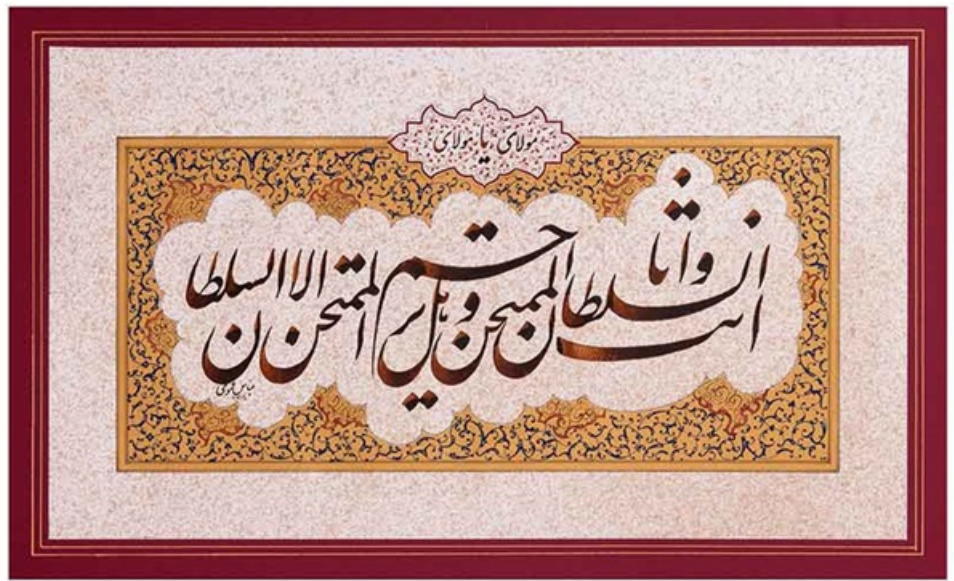 مولای یا مولای
انت السلطان وانا الممتحن وهل یرحم الممتحن الا السلطان
عباس